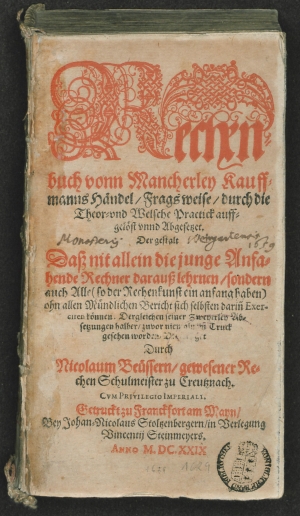 Rechen-
buch vonn Mancherley Kauff-
manns Händel/Frags weise/durch die
Theor-vnd Welsche Practick auff-
gelöst vnnd Abgesetzt.
Der gestalt
Daß nit allein die junge Anfa-
hende Rechner darauß lehrnen/sondern
auch Alle (so der Rechenkunst ein anfang haben)
ohn allen Mündlichen Bericht sich selbsten darin Exer-
ciren können. Dergleichen seiner Zweyerley Ab-
setzungen halber/zuvor nie in Truck
gesehen worden
Durch
Nicolaum Beüssern/gewesener Re-
chen Schulmeister zu Creutznach.
CVM PRIVILEGIO IMPERIALI.
Getruckt zu Franckfort am Mayn/
Bey Johan-Nicolaus Stoltzenbergern/in Verlegung
Vincentij Steinmeyers.
ANNO M. DC. XXIX